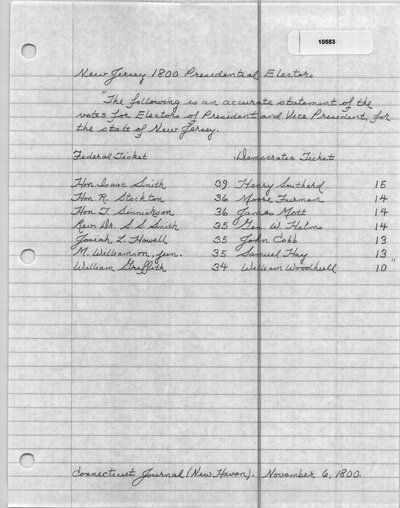 10553
New Jersey 1800 Presidential Electors
"The following is an accurate statement of the
votes for Electors of President and Vice President, for
the state of New Jersey.
Federal Ticket Democratic Ticket
Hon. Isaac Smith 39 Henry Southard 15
Hon R. Stockton 36 Moore Furman 14
Hon T. Sinnickson 36 James Mott 14
Rev. Dr. S. S. Smith 35 Gen W. Helms 14
Josiah L. Howell 35 John Cobb 13
M. Williamson, jun. 35 Samuel Hay 13
William Griffith 34 William Woodhull 10"
Connecticut Journal (New Haven). November 6, 1800.